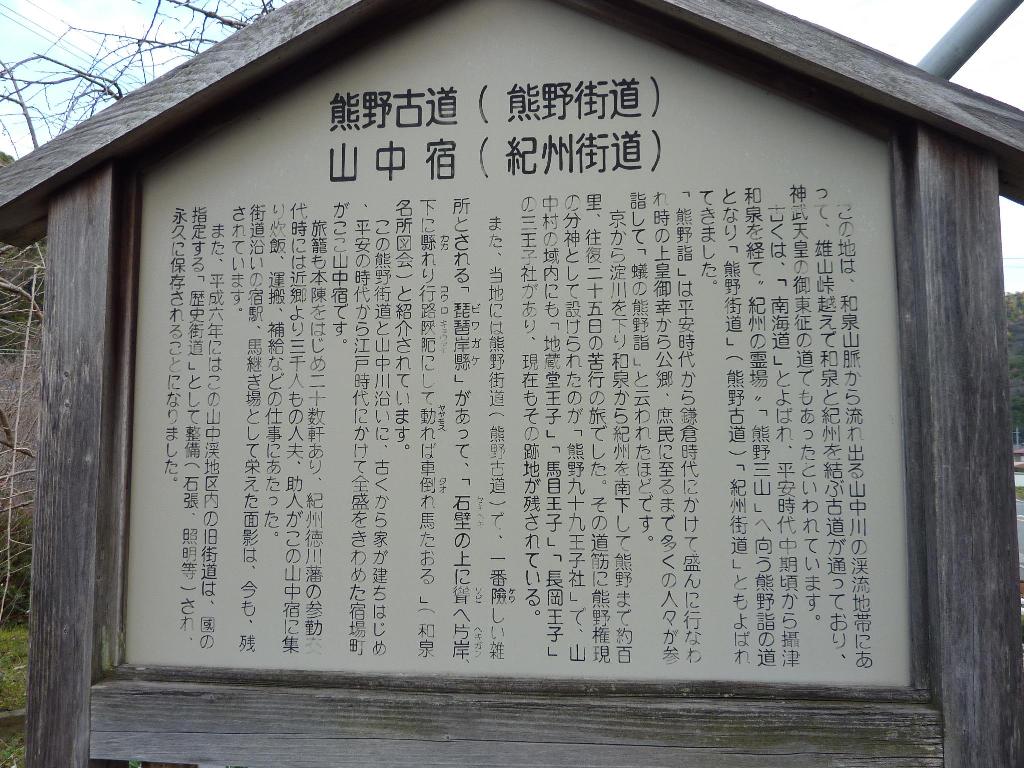 熊野古道(熊野街道)
山中宿(紀州街道)
この地は、和泉山脈から流れ出る山中川の渓流地帯にあ
って、雄山峠越えて和泉と紀州を結ぶ古道が通っており、
神武天皇の御東征の道でもあったといわれています。
古くは、「南海道」とよばれ、平安時代中期頃から摂津
和泉を経て〝紀州の霊場〟「熊野三山」へ向う熊野詣の道
となり「熊野街道」(熊野古道)「紀州街道」ともよばれ
てきました。
「熊野詣」は平安時代から鎌倉時代にかけて盛んに行なわ
れ時の上皇御幸から公郷、庶民に至るまで多くの人々が参
詣して、「蟻の熊野詣」と云われたほどです。
京から淀川を下り和泉から紀州を南下して熊野まで約百
里、往復二十五日の苦行の旅でした。その道筋に熊野権現
の分神として設けられたのが「熊野九十九王子社」で、山
中村の域内にも「地蔵堂王子」「馬目王子」「長岡王子」
の三王子社があり、現在もその跡地が残されている。
また、当地には熊野街道(熊野古道)で、一番険しい難
所とされる「琵琶岸縣」があって、「石壁の上に聳へ片岸、
下に縣れり行路陝阨にして動れば車倒れ馬たおる」(和泉
名所図会)と紹介されています。
この熊野街道と山中川沿いに、古くから家が建ちはじめ
、平安の時代から江戸時代にかけて全盛をきわめた宿場町
がここ山中宿です。
旅籠も本陣をはじめ二十数軒あり、紀州徳川藩の参勤交
代時には近郷より三千人もの人夫、助人がこの山中宿に集
り炊飯、運搬、補給などの仕事にあたった。
街道沿いの宿駅、馬継ぎ場として栄えた面影は、今も、残
されています。
また、平成六年にはこの山中渓地区内の旧街道は、國の
指定する「歴史街道」として整備(石張、照明等)され、
永久に保存されることになりました。